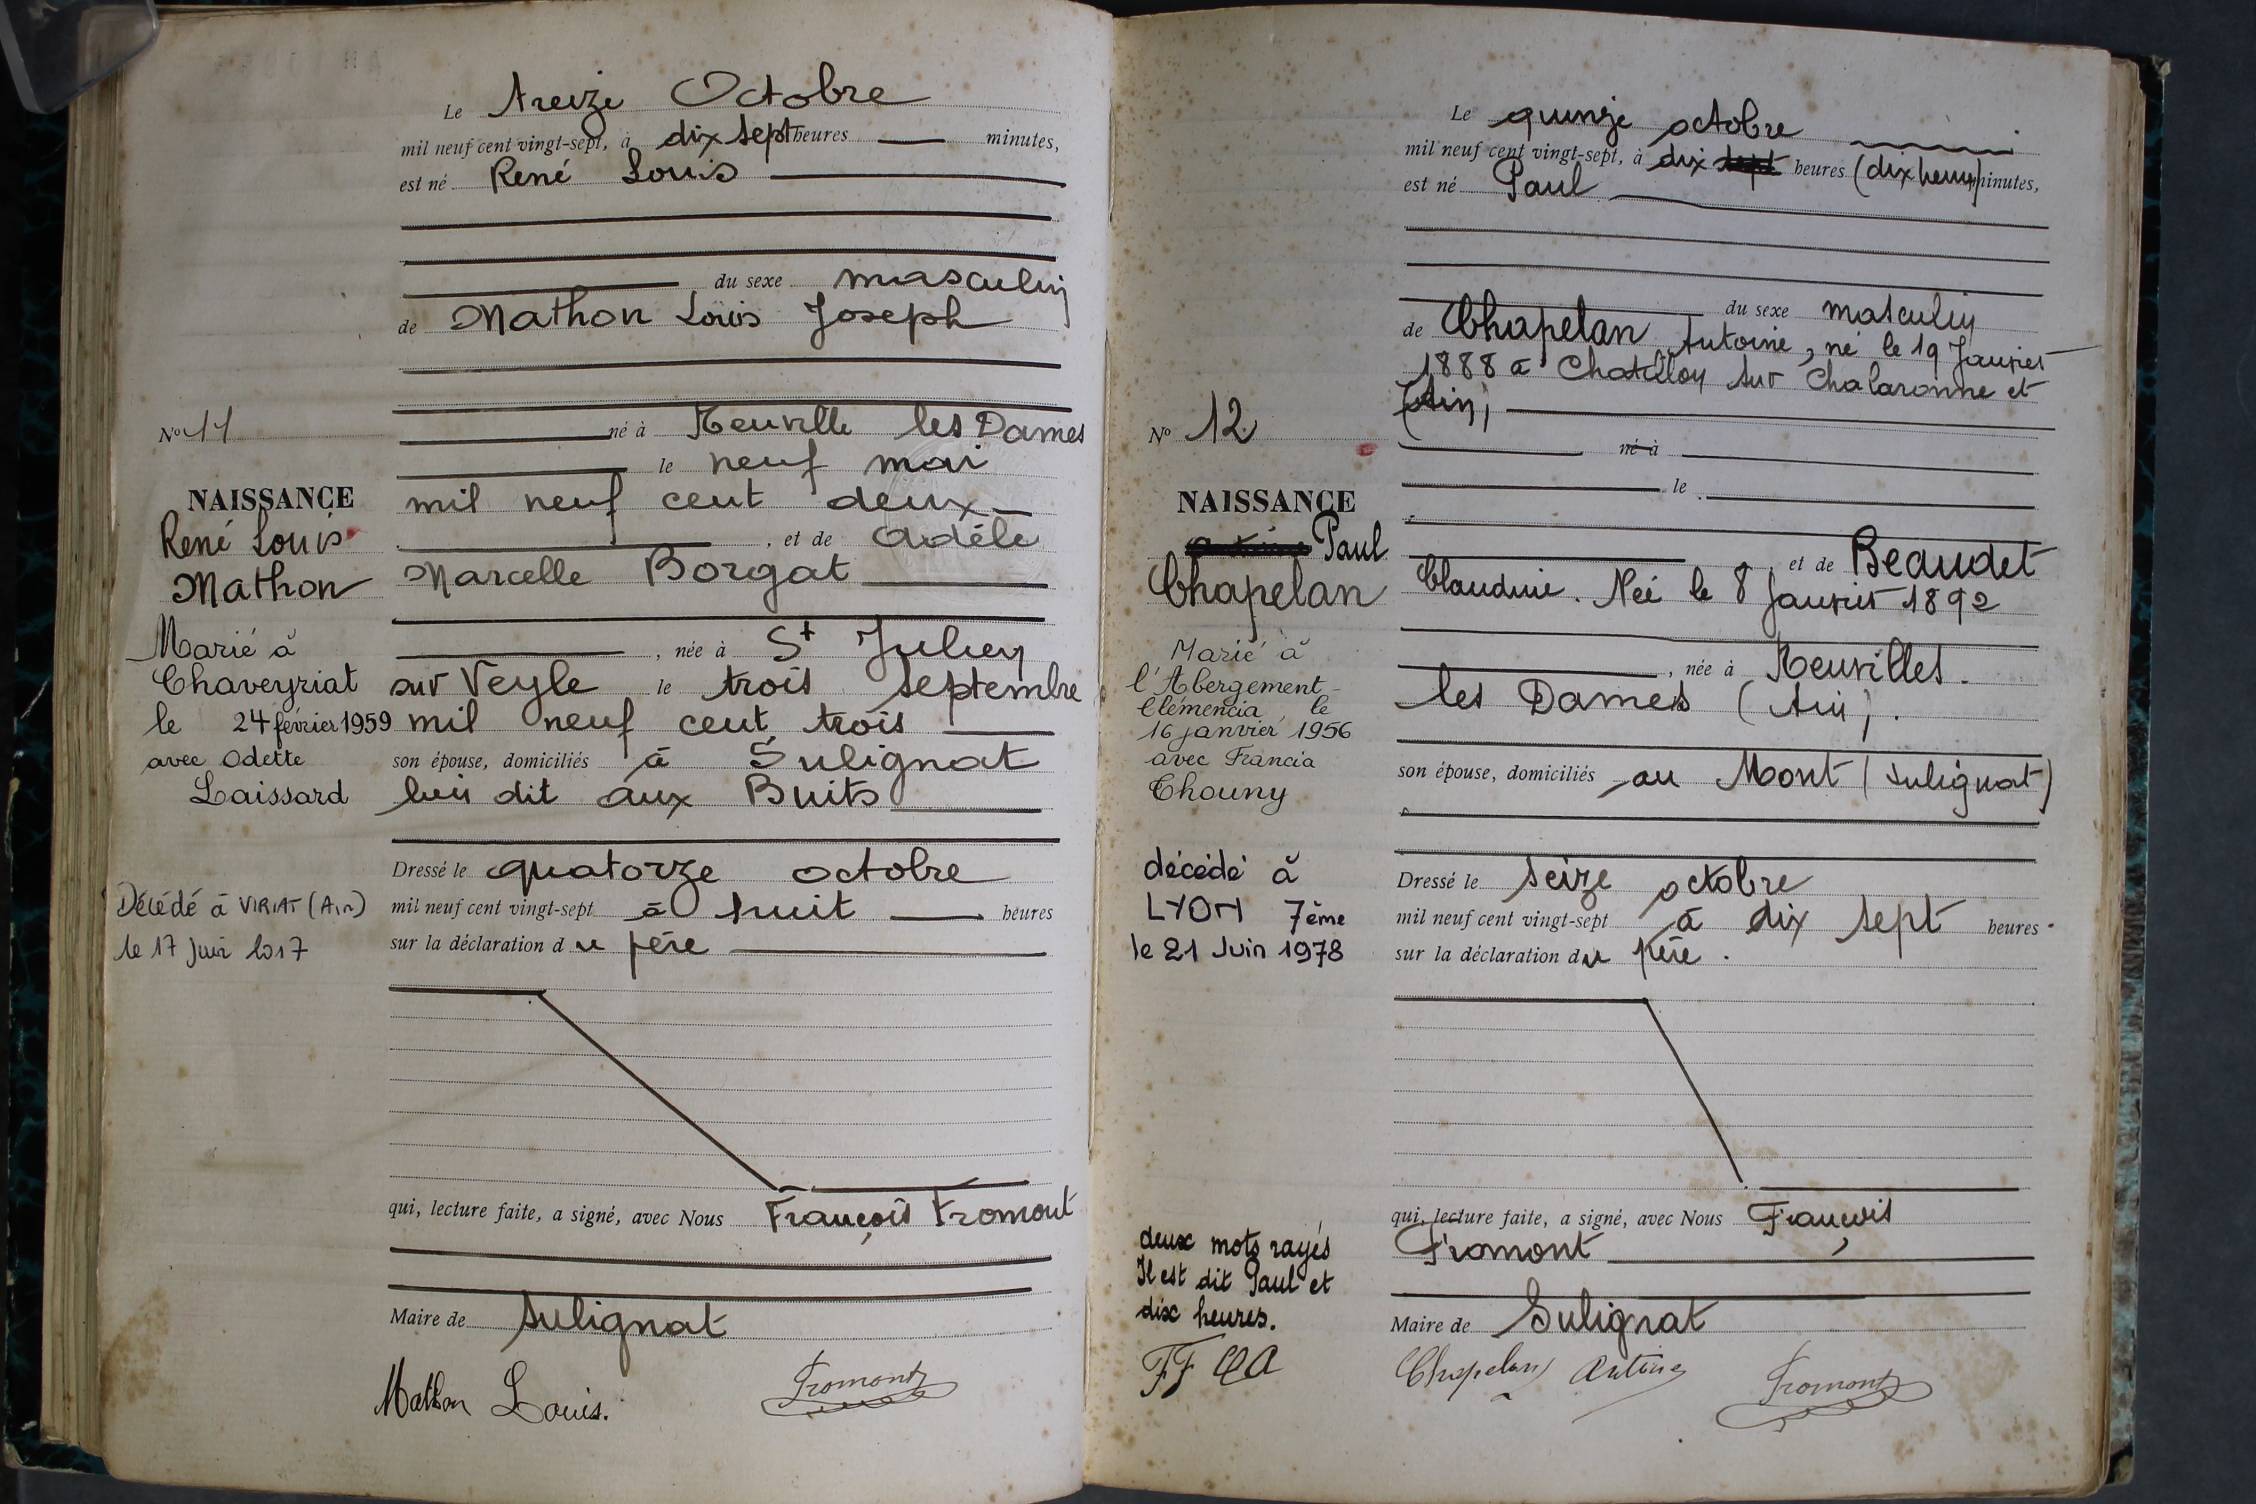 Le treize Octobre
mil neuf cent vingt-sept, à dix sept heures — minutes,
est né René Louis
du sexe masculin
de Mathon Louis Joseph
né à Neuville les Dames
le neuf mai
mil neuf cent deux
, et de Adèle
Marcelle Borgat
, née à St Julien
sur Veyle le trois septembre
mil neuf cent trois
son épouse, domiciliés à Sulignat
lieu dit aux Buits
Dressé le quatorze octobre
mil neuf cent vingt-sept à huit — heures
sur la déclaration du père
qui, lecture faite, a signé, avec Nous François Fromont
Maire de Sulignat
Mathon Louis. Fromont
No 11
NAISSANCE
René Louis
Mathon
Marié à
Chaveyriat
le 24 février 1959
avec Odette
Laissard
Décédé à VIRIAT (Ain)
le 17 Juin 2017
Le quinze octobre
mil neuf cent vingt-sept, à dix sept heures (dix heures) minutes,
est né Paul
du sexe masculin
de Chapelan Antoine, né le 19 Janvier
1888 à Chatillon sur Chalaronne et
(Ain)
né à
le
, et de Beaudet
Claudine. Née le 8 Janvier 1892
, née à Neuvilles.
les Dames (Ain).
son épouse, domiciliés au Mont (Sulignat)
Dressé le seize octobre
mil neuf cent vingt-sept à dix sept heures
sur la déclaration du père.
qui, lecture faite, a signé, avec Nous François
Fromont
Maire de Sulignat
Chapelan Antoine Fromont
No 12
NAISSANCE
Paul
Chapelan
Marié à
l'Abergement-
Clémencia, le
16 janvier 1956
avec Francia
Chouny
décédé à
LYON 7ème
le 21 Juin 1978
deux mots rayés
Il est dit Paul et
dix heures.
FF CA